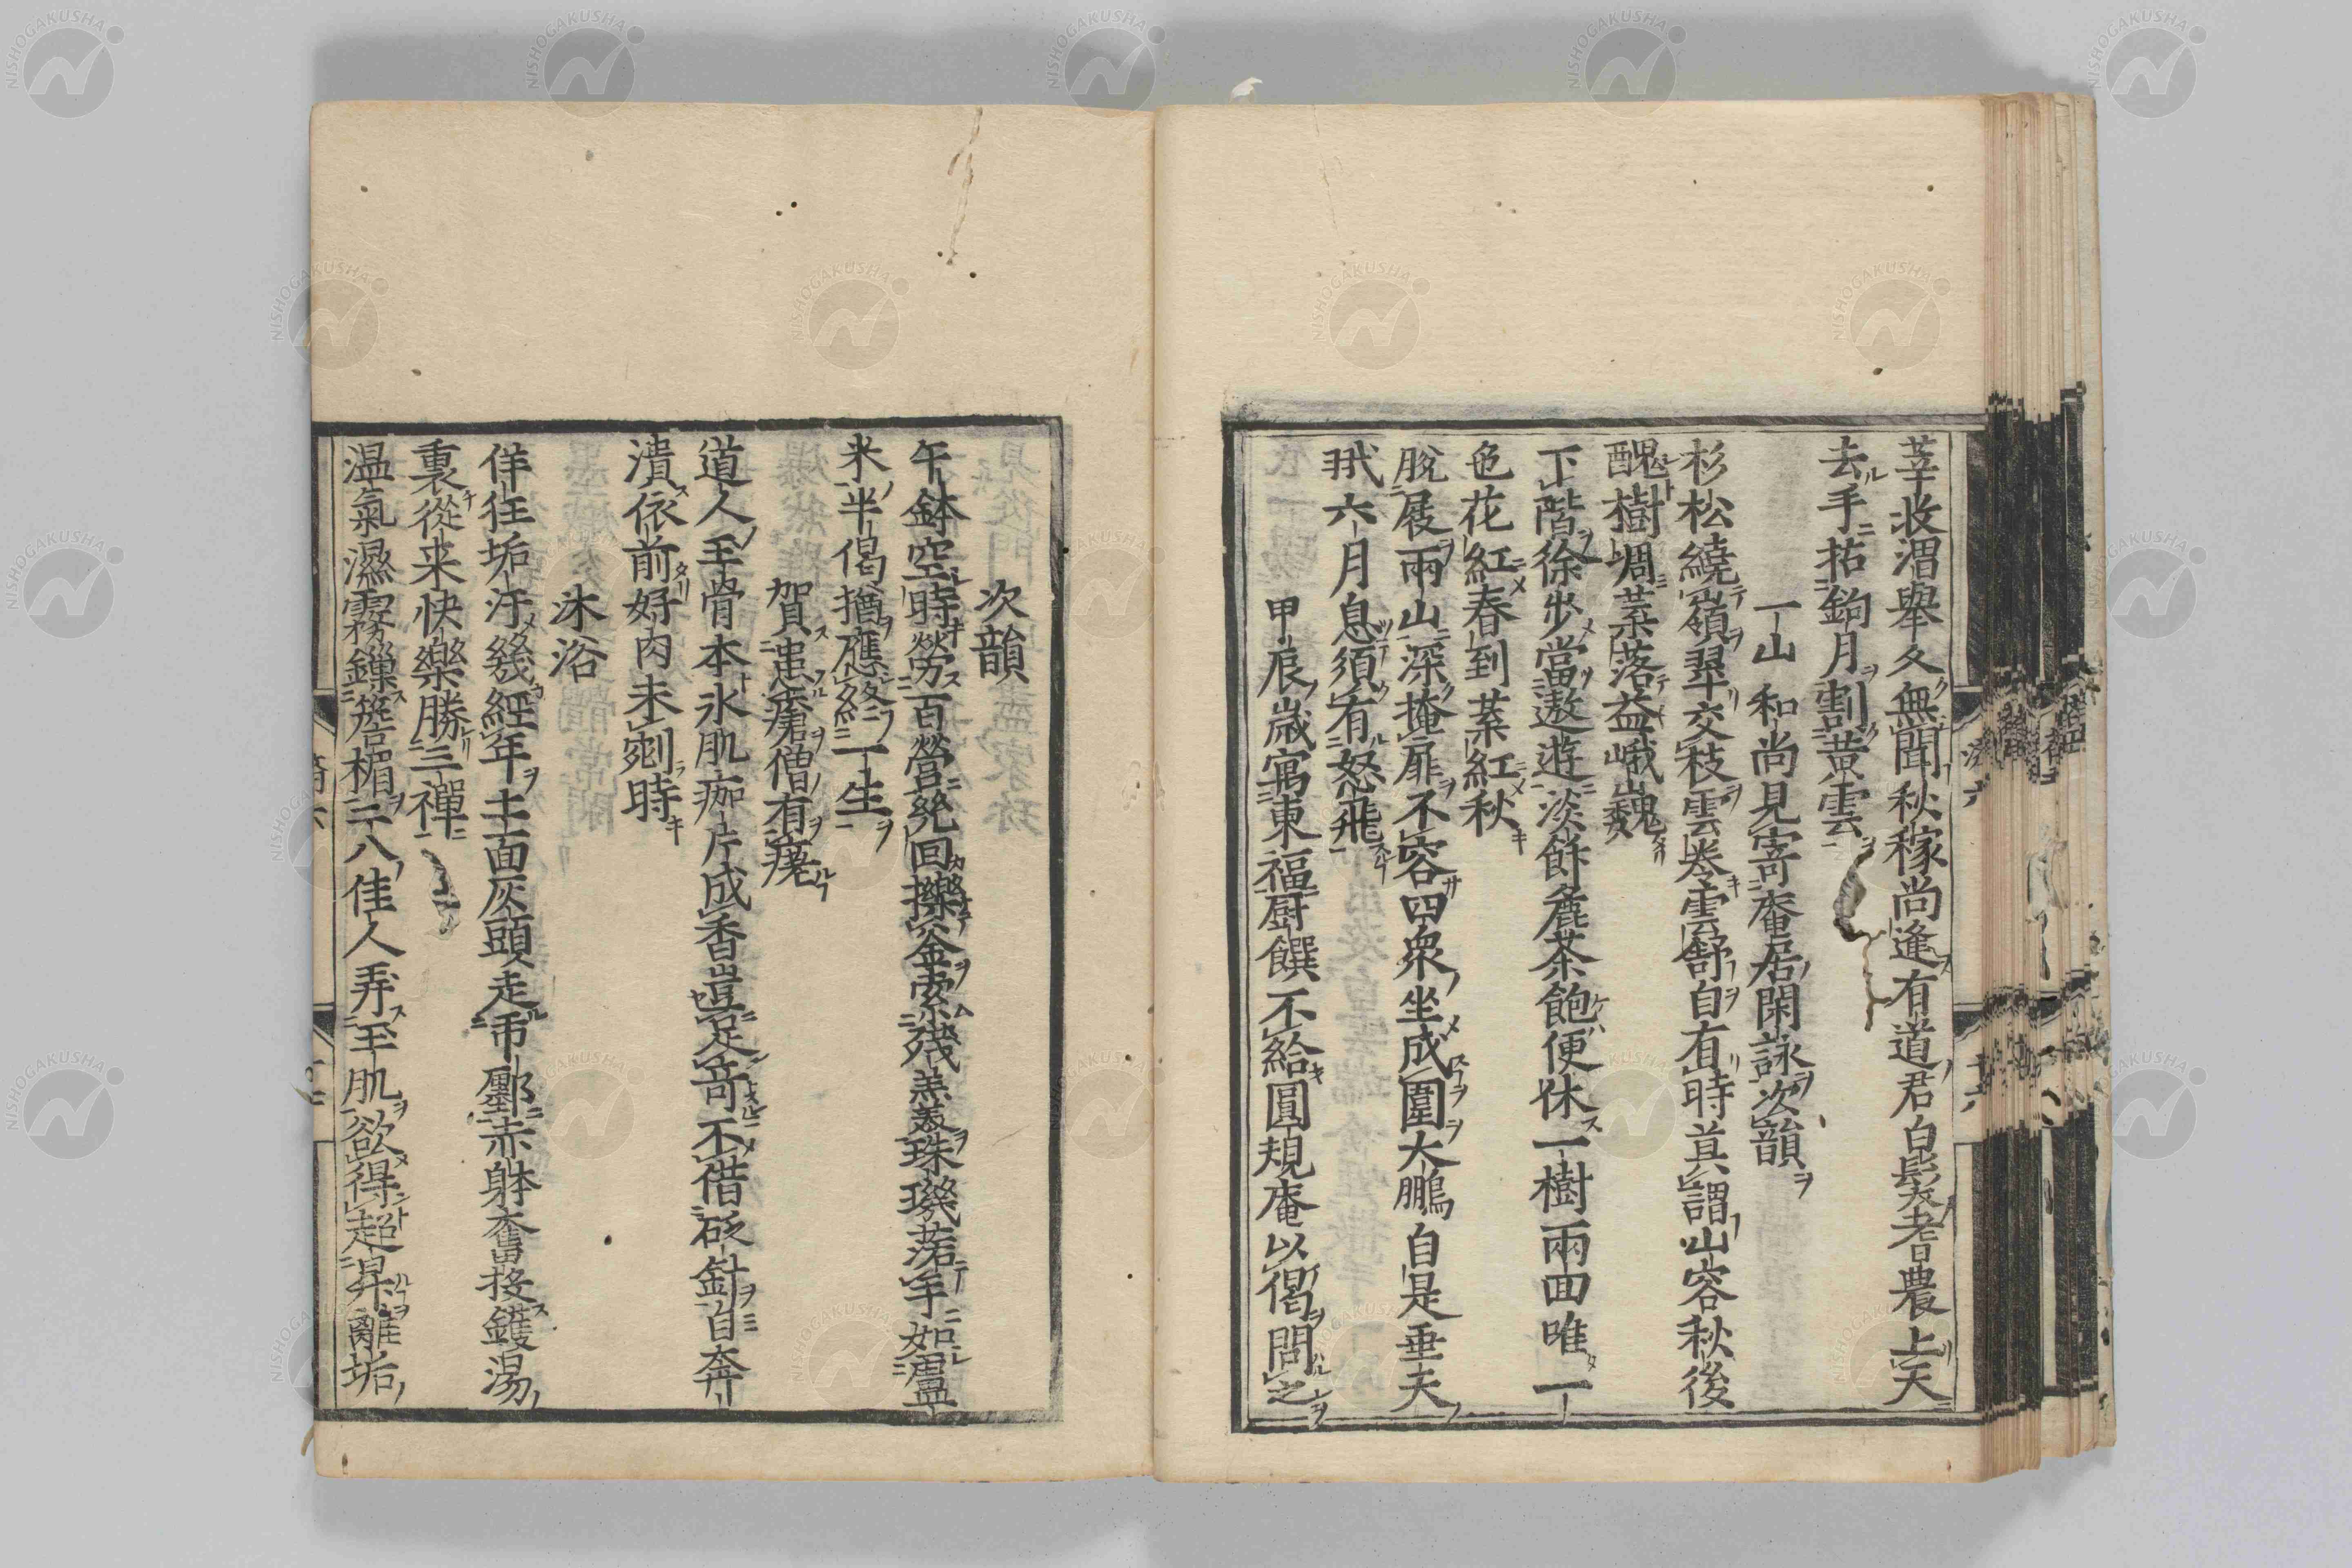 莘收渭舉久無聞秋稼尚逢有道君白髮耆農上天
去手拈鉤月割黄雲
一山和尚見寄庵居閑詠次韻
杉松繞嶺翠交枝雲卷雲舒自有時莫謂山容秋後
醜樹凋葉落益峨巍
下階徐步當遨遊淡飯麁茶飽便休一樹兩面唯一
色花紅春到葉紅秋
脫屐兩山深掩扉不容四衆坐成圍大鵬自是垂天
翅六月息須有怒飛
甲辰歲寓東福厨饌不給圓規庵以偈問之
次韻
午鉢空時勞百營繞回擽釜索殘羹珠璣落手如盧
米半偈猶應終一生
賀患瘡僧有瘥
道人玉骨本氷肌痂片成香豈足奇不借砭針自奔
潰依前好肉未剜時
沐浴
佯狂垢汙幾經年土面灰頭走市鄽赤躰奮投鑊湯
裏從来快樂勝三禪
温氣濕霧鏁簷楣二八佳人弄玉肌欲得超昇離垢